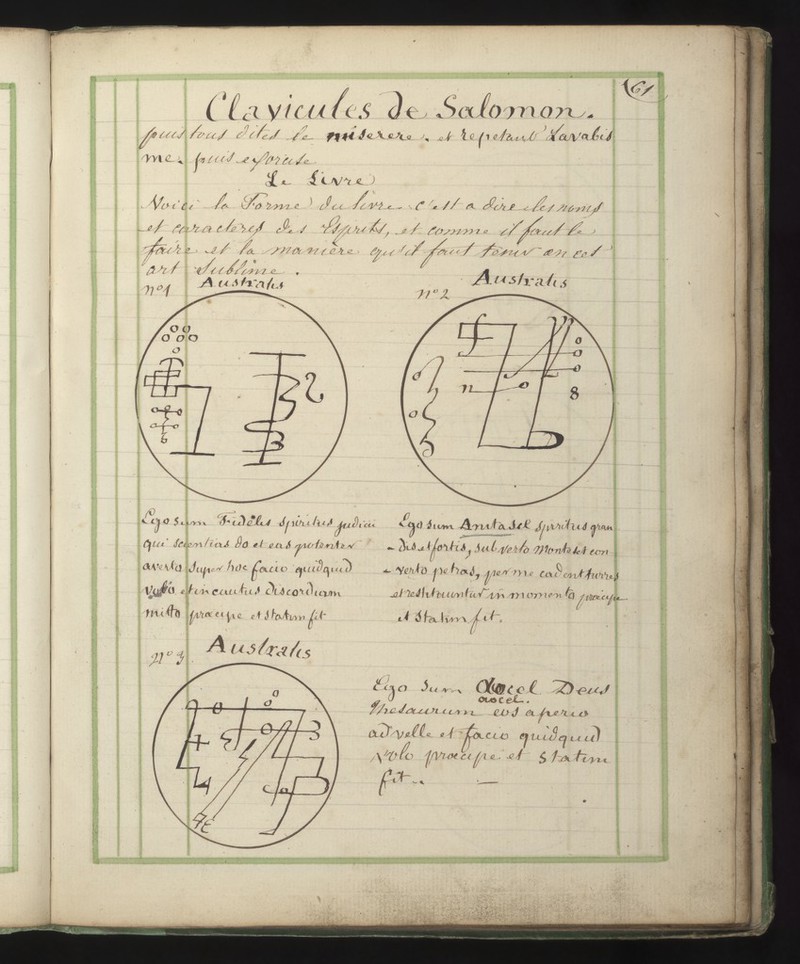 61
Clavicules de Salomon.
puis tous dites le miserere. et repetant Lavabis
me. puis exorcise
Le Livre
Voici la Forme du livre c'est a dire les noms
et caracteres des Esprits, et comme il faut le
faire et la maniere qu'il faut tenir en cet
art sublime.
n° 1 Australis
n° 2 Australis
Ego sum Fidelis spiritus
qui scientias do et eas potenter
averto super hoc facio quidquid
volo et incautus discordiam
mitto praecipe et statim fit
Ego sum Anitasel spiritus gran
-dis et fortis, sub verto montes et con
-verto petras, per me cadent turres
et restituuntur in momento praecipe
et statim fit.
n° 3 Australis
Ego sum Deus
aocel.
Thesaurum eos aperio
ad velle et facio quidquid
volo praecipe et statim
fit..